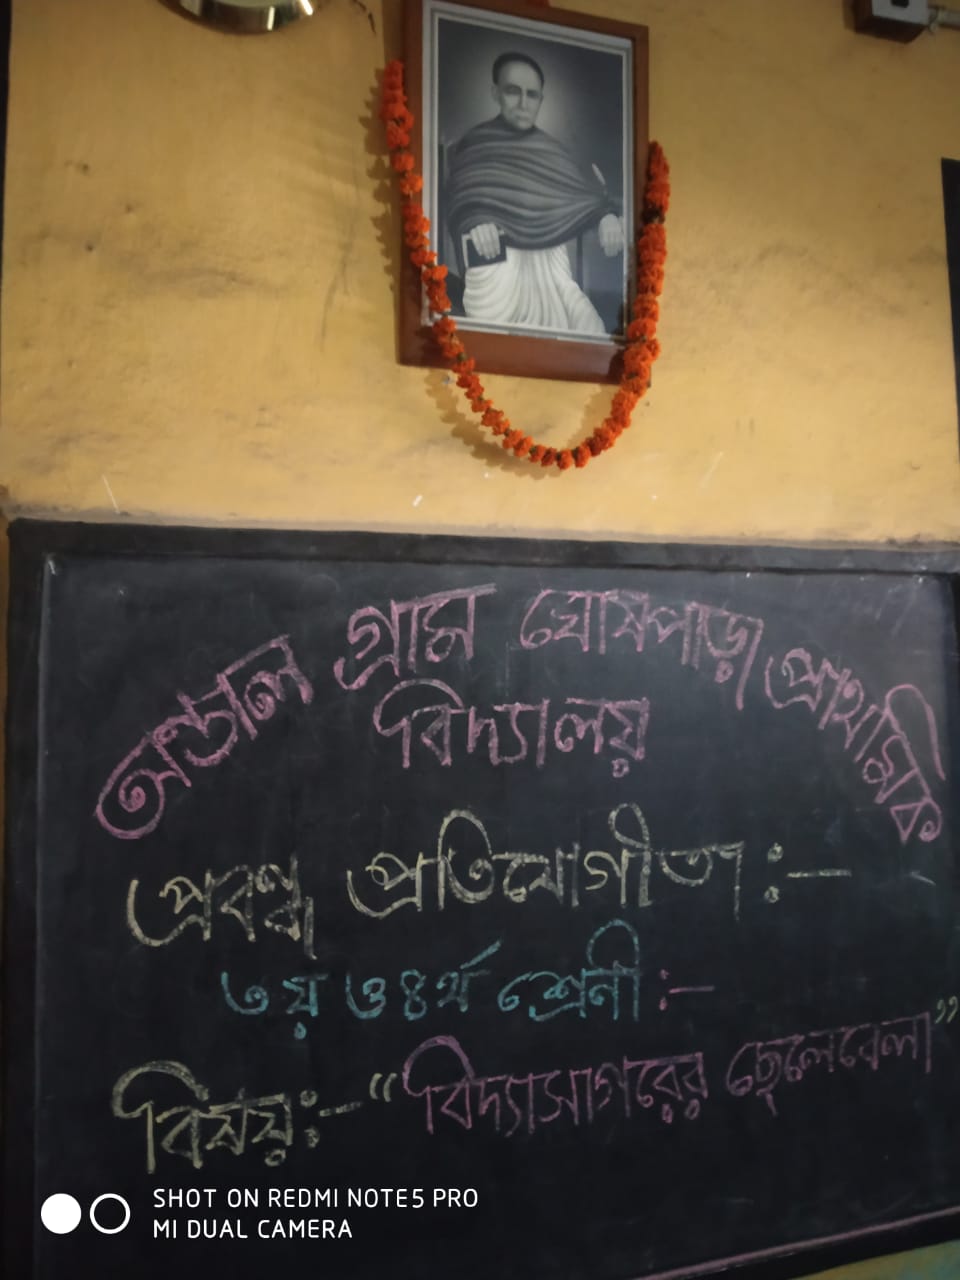 অন্ডাল গ্রাম ঘোষপাড়া প্রাথমিক
বিদ্যালয়
প্রবন্ধ প্রতিযোগীতা :—
৩য় ও ৪র্থ শ্রেণী :—
বিষয়:— “বিদ্যাসাগরের ছেলেবেলা”
SHOT ON REDMI NOTE5 PRO
MI DUAL CAMERA